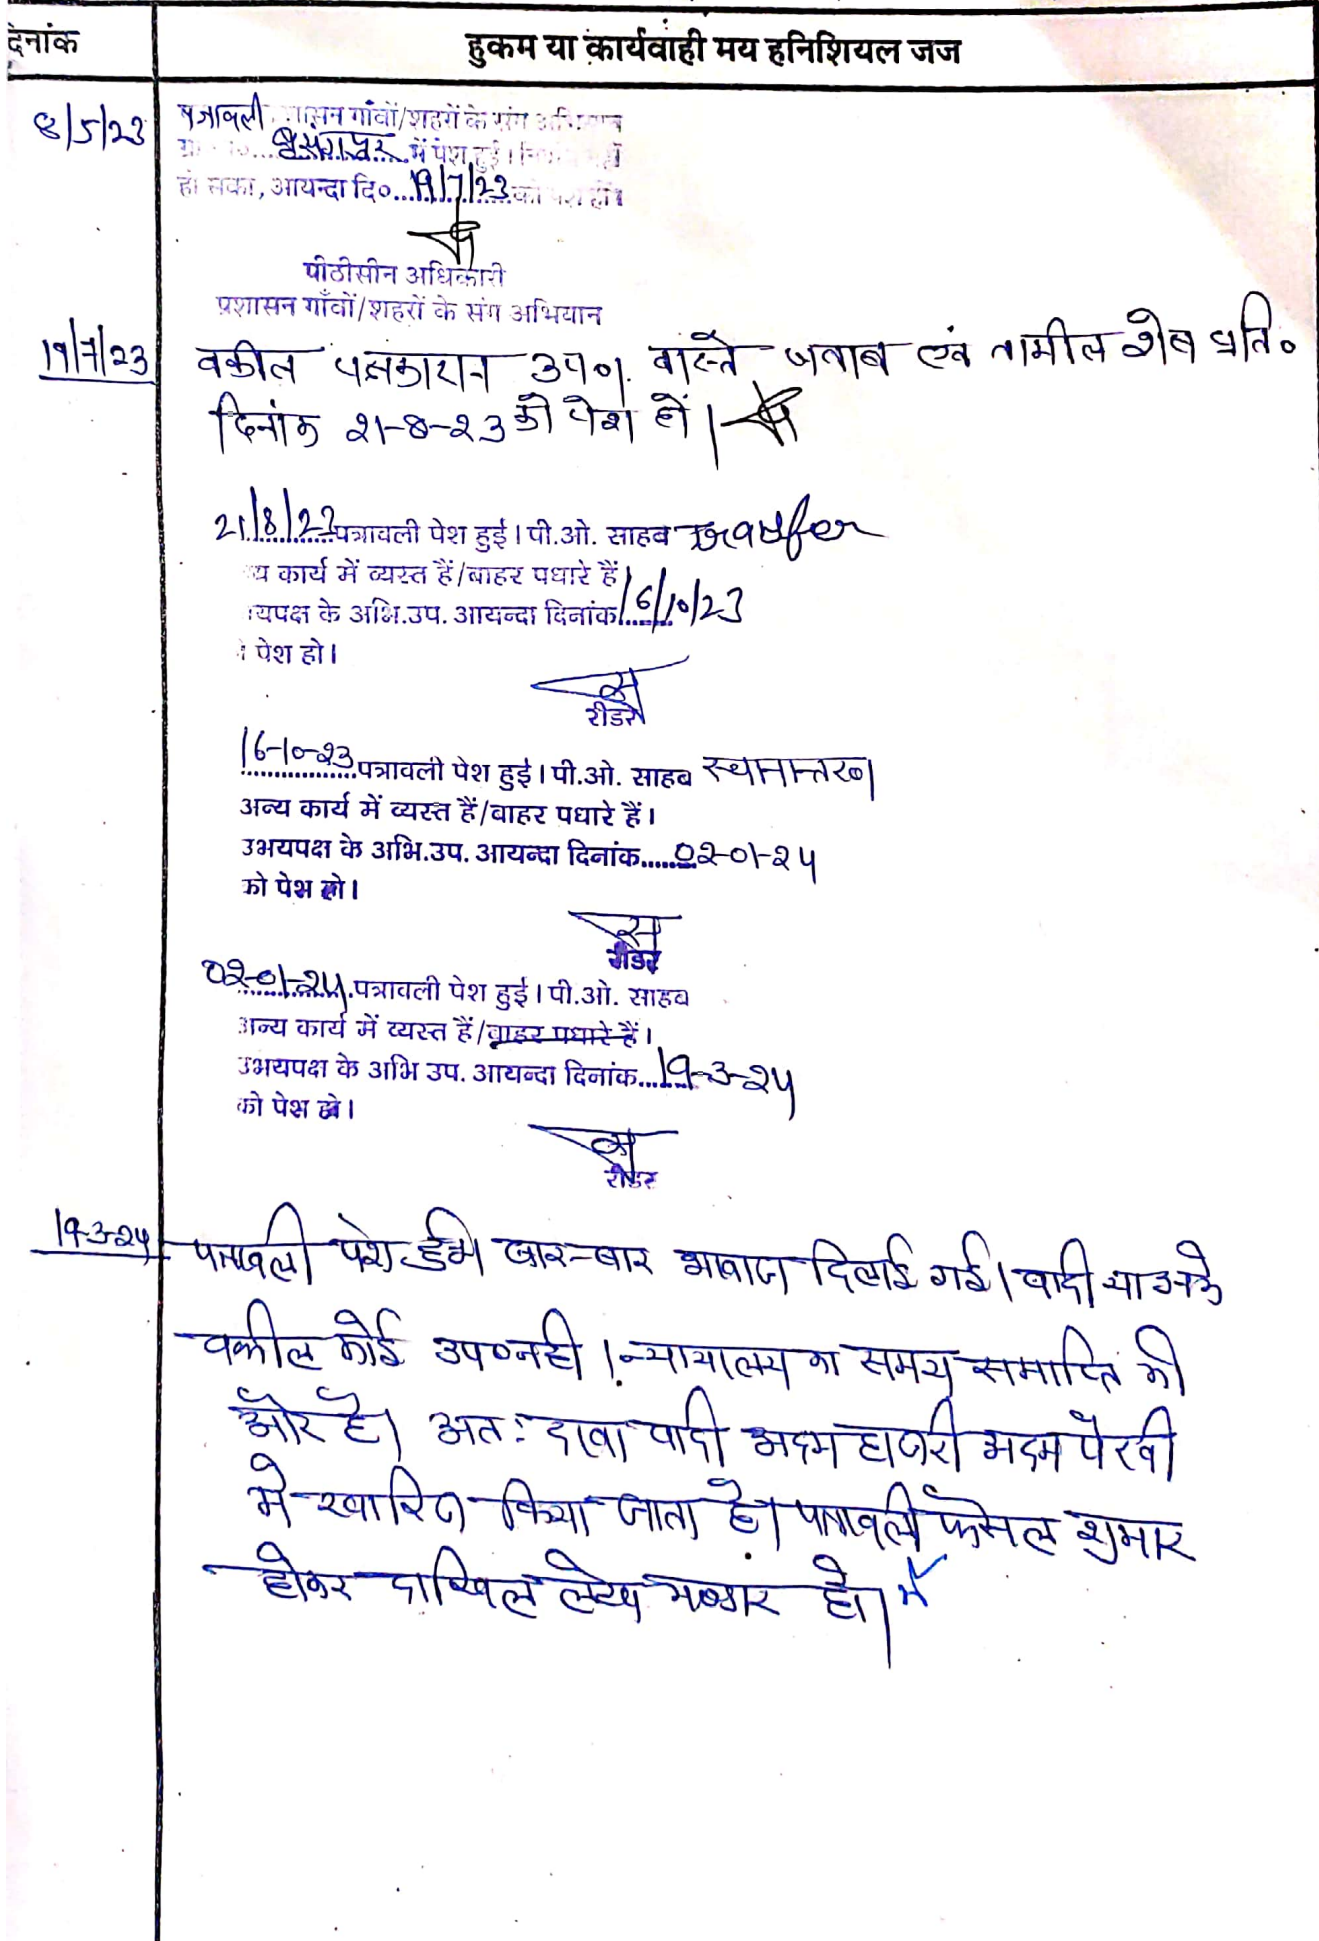 दिनांक
हुकम या कार्यवाही मय हनिशियल जज
8/5/23
पत्रावली शासन गांवों/शहरों के संग अभियान
में पेश हुई। निर्णय नहीं
हो सका, आयन्दा दि० 19/7/23 को पेश हो।
पीठीसीन अधिकारी
प्रशासन गाँवों/शहरों के संग अभियान
19/7/23
वकील पक्षकारान उप०। वास्ते जवाब एवं तामील शेष प्रति०
दिनांक 21-8-23 को पेश हों।
21/8/23 पत्रावली पेश हुई। पी.ओ. साहब Transfer
य कार्य में व्यस्त हैं/बाहर पधारे हैं।
यपक्ष के अभि.उप. आयन्दा दिनांक 16/10/23
पेश हो।
रीडर
16-10-23 पत्रावली पेश हुई। पी.ओ. साहब स्थानान्तरण
अन्य कार्य में व्यस्त हैं/बाहर पधारे हैं।
उभयपक्ष के अभि.उप. आयन्दा दिनांक......02-01-24
को पेश हो।
रीडर
02-01-24 पत्रावली पेश हुई। पी.ओ. साहब
अन्य कार्य में व्यस्त हैं/बाहर पधारे हैं।
उभयपक्ष के अभि उप. आयन्दा दिनांक......19-3-24
को पेश हो।
रीडर
19-3-24
पत्रावली पेश हुई। बार-बार आवाज दिलाई गई। वादी या उनके
वकील कोई उप० नही। न्यायालय का समय समाप्ति की
ओर है। अतः दावा वादी अदम हाजरी अदम पैरवी
मे खारिज किया जाता है। पत्रावली फैसल शुमार
होकर दाखिल लेख भण्डार हो।